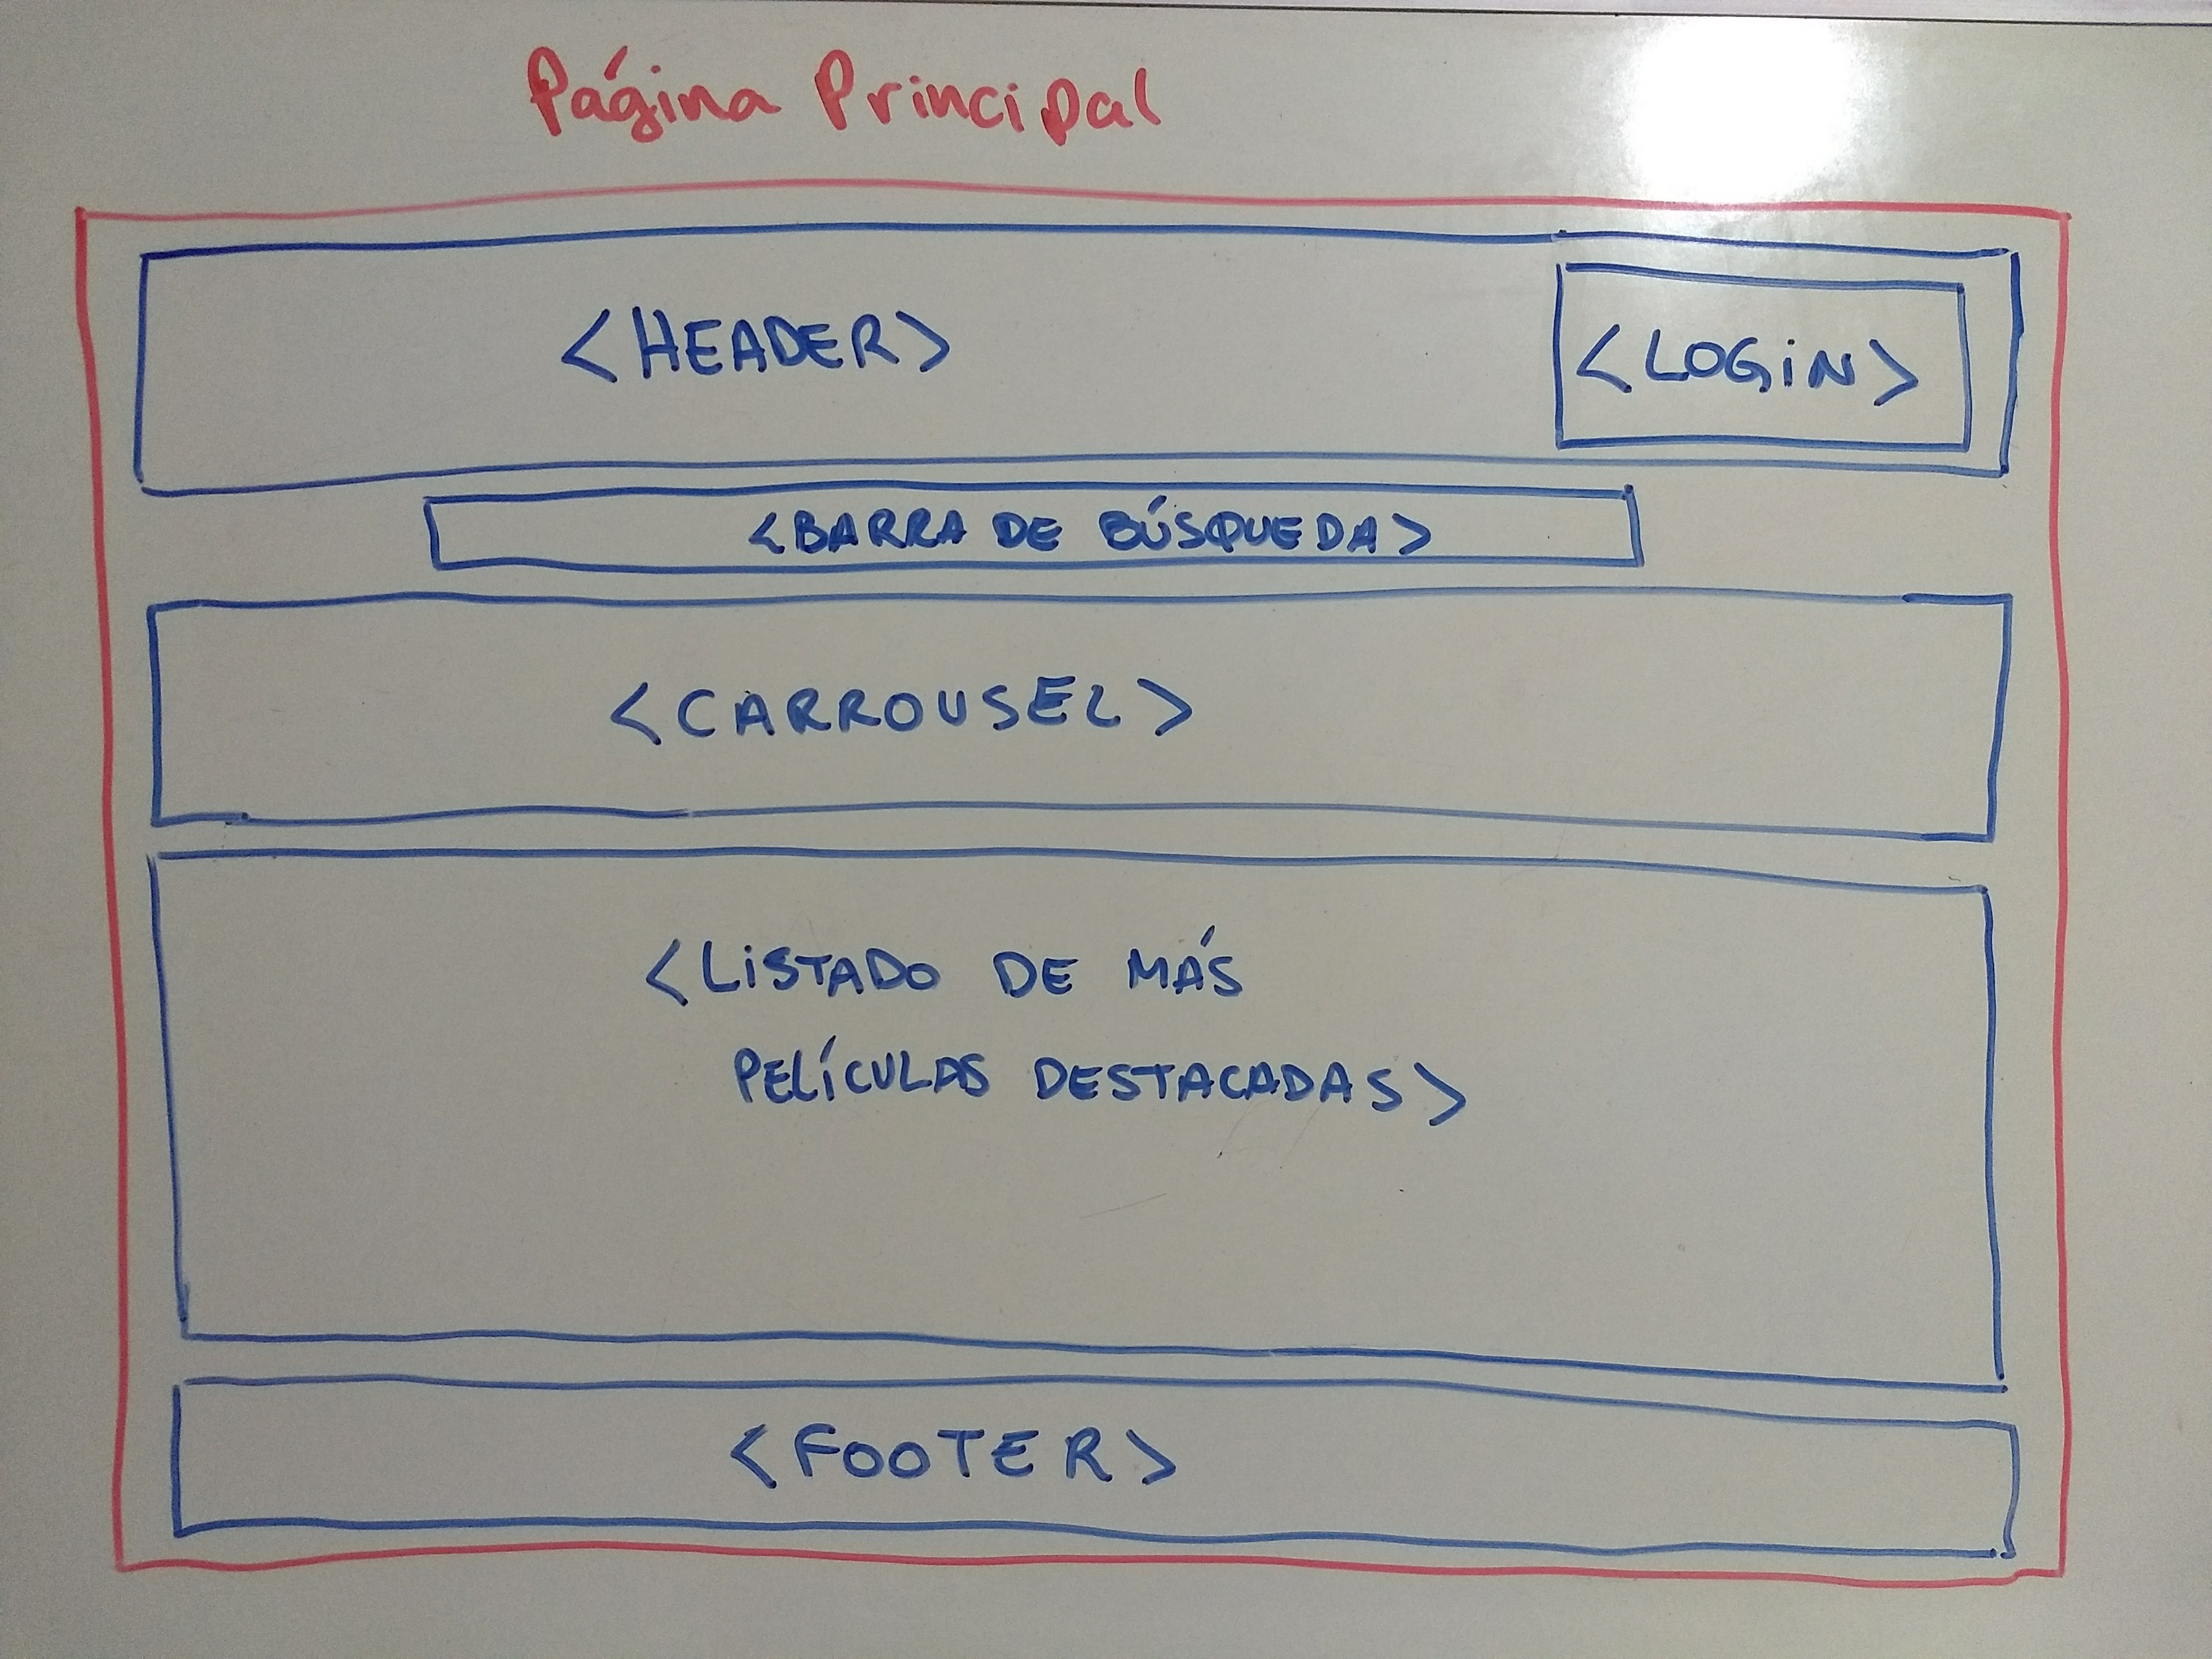 Página Principal
<HEADER>
<LOGiN>
<BARRA DE BÚSQUEDA>
<CARROUSEL>
<LiSTADO DE MÁS
PELÍCULAS DESTACADAS>
<FOOTER>